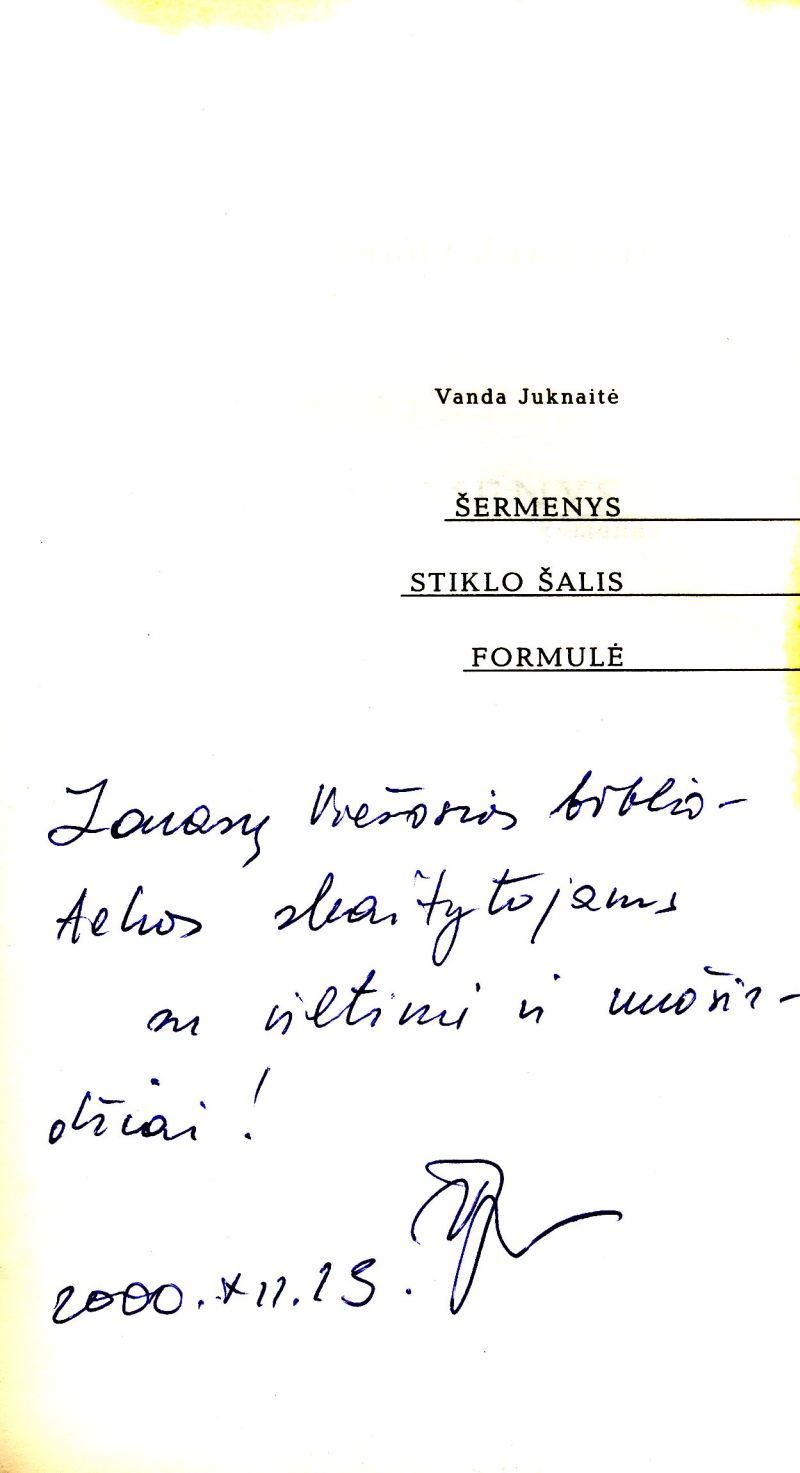 Vanda Juknaitė
ŠERMENYS
STIKLO ŠALIS
FORMULĖ
Zarasų Viešosios biblio-
tekos skaitytojams
su viltimi ir nuošir-
džiai!
2000.XII.